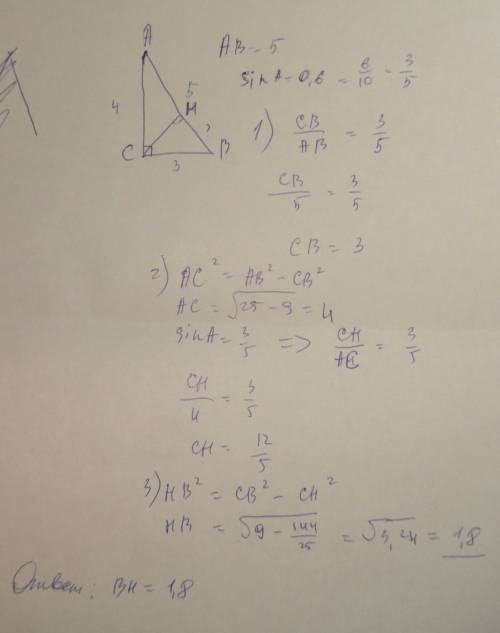 A
AB = 5
sin A = 0,6 = 6/10 = 3/5
4
5
H
?
C
3
B
1) CB/AB = 3/5
CB/5 = 3/5
CB = 3
2) AC² = AB² - CB²
AC = √25 - 9 = 4
sin A = 3/5 => CH/AC = 3/5
CH/4 = 3/5
CH = 12/5
3) HB² = CB² - CH²
HB = √9 - 144/25 = √3,24 = 1,8
Ответ: BH = 1,8